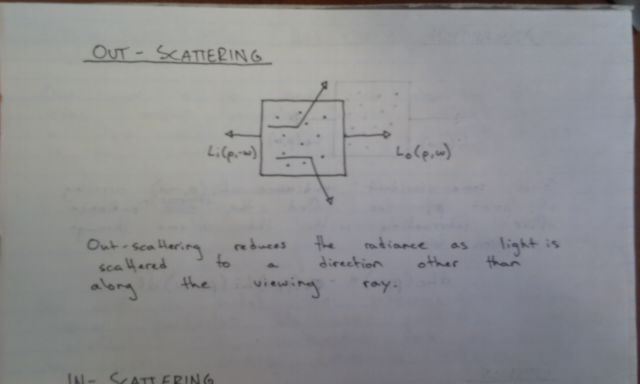 OUT - SCATTERING
Li(p,-w)
Lo(p,w)
Out-scattering reduces the radiance as light is
scattered to a direction other than
along the viewing ray.
IN- SCATTERING